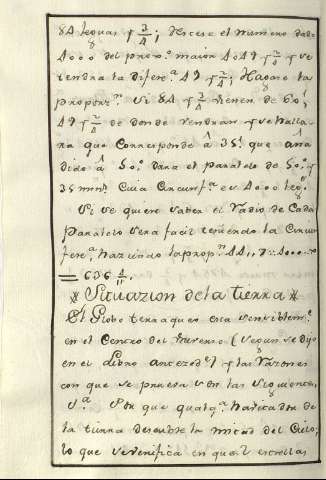 84 leguas y 3/4; Restese el numero dado
4000 del prox.º maior 4049 y 2/4 y se
tendra la difere.ª 49 y 2/4; Hagase la
proporz.n si 84 y 3/4 tienen de 60'
49 y 2/4 de donde vendran y se halla
ra que corresponde â 35' que aña
dido â 50.º dara el paralelo de 50.º y
35 min.s Cuia Circunf.ª es 4000 leg.s
Si se quiere saber el Radio de Cada
Paralelo sera facil teniendo la Circun
fere.ª, haziendo la prop.n 44,, 7:: 4000
= 636 4/11.
Situazion de la tierra
El Globo terraqueo esta sensiblem.e
en el Centro del Universo (segun se dijo
en el Libro anteced.e) y las Razones
con que se prueva son las Siguientes,
1.ª Por que qualq.ª havitador de
la tierra descubre la mitad del Cielo,
lo que se verifica en que si estrellas